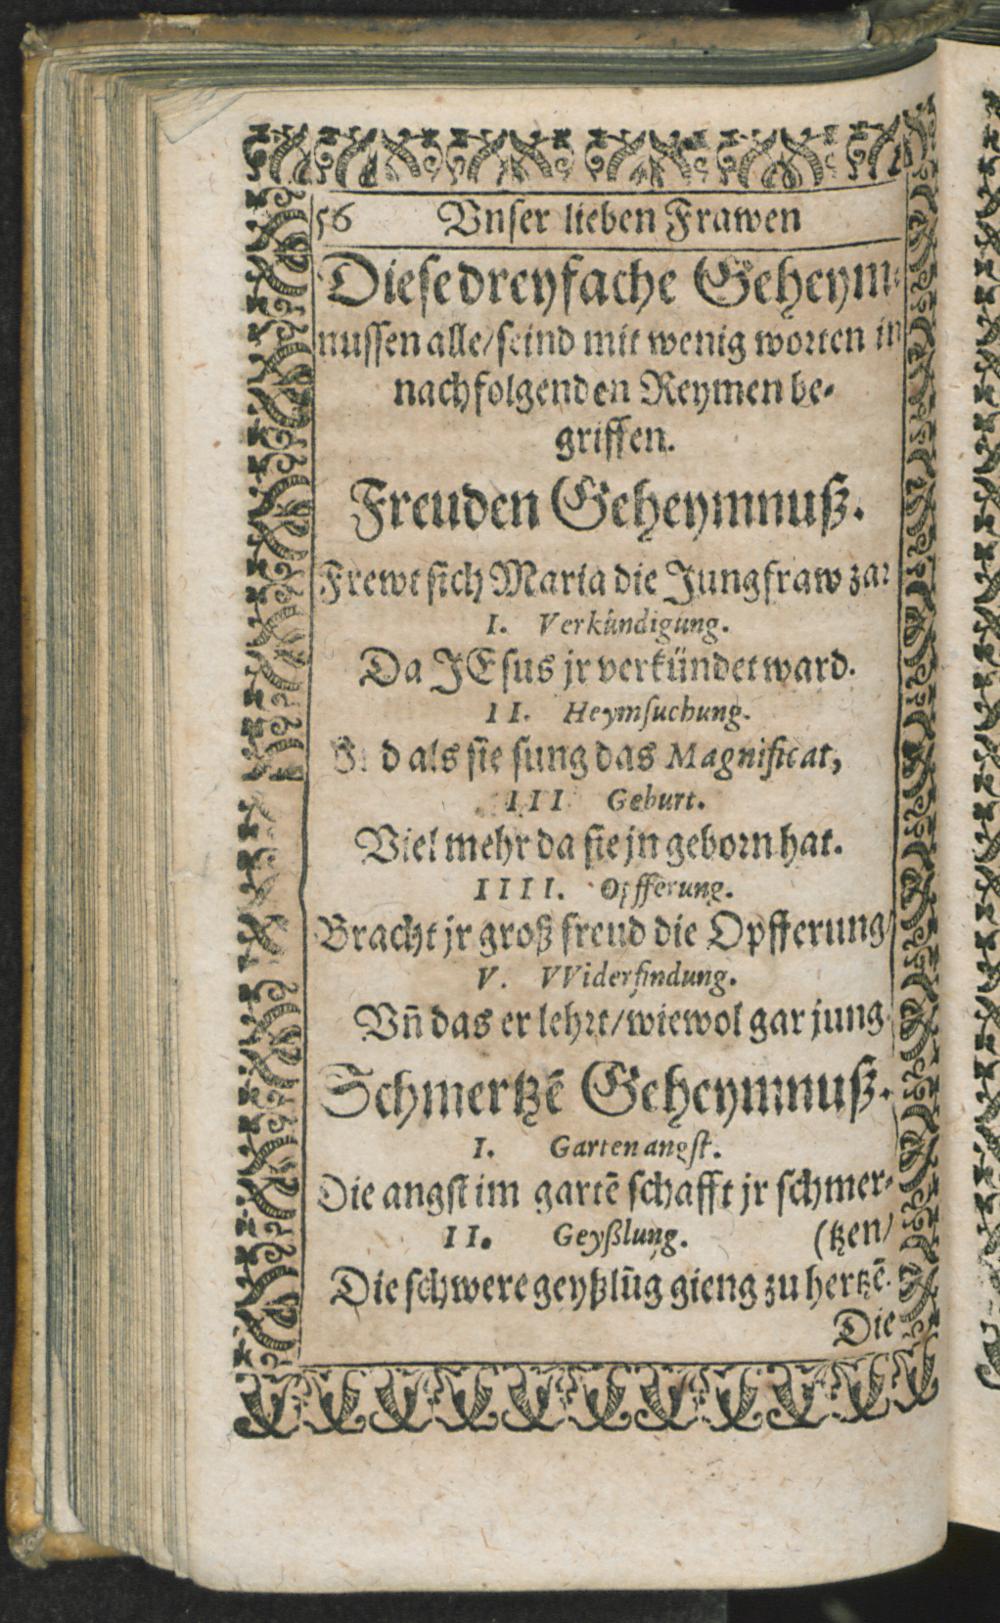 56 Vnser lieben Frawen
Diese dreyfache Geheym-
nussen alle/seind mit wenig worten in
nachfolgenden Reymen be-
griffen.
Freuden Geheymnuß.
Frewt sich Maria die Jungfraw zar
I. Verkündigung.
Da JEsus jr verkündet ward.
II. Heymsuchung.
als sie sung das Magnificat,
III Geburt.
Viel mehr da sie jn geborn hat.
IIII. Opfferung.
Bracht jr groß freud die Opfferung/
V. VViderfindung.
Vn̄ das er lehrt/wiewol gar jung.
Schmertzē Geheymnuß.
I. Garten angst.
Die angst im gartē schafft jr schmer-
II. Geyßlung. (tzen/
Die schwere geyßlūg gieng zu hertzē.
Die